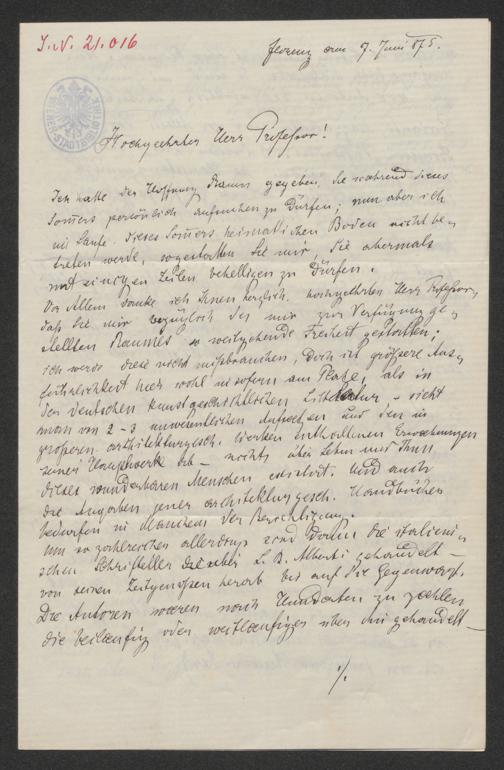 J.N. 21.016
Florenz am 9. Juni 875.
Hochgeehrter Herr Professor!
Ich hatte der Hoffnung Raum gegeben, Sie während dieses
Somers persönlich aufsuchen zu dürfen; nun aber ich
im Laufe dieses Somers heimatlichen Boden nicht be-
treten werde, so gestatten Sie mir, Sie abermals
mit einigen Zeilen behelligen zu dürfen.
Vor Allem danke ich Ihnen herzlich, hochgeehrter Herr Professor,
daß Sie mir bezüglich des mir zur Verfügung ge-
stellten Raumes so weitgehende Freiheit gestatten;
ich werde diese nicht mißbrauchen. Doch ist größere Aus-
führlichkeit hier wohl insofern am Platze, als in
der deutschen kunstgeschichtlichen Litteratur – sieht
man von 2–3 unwesentlichen Aufsätzen und den in
größeren architekturgesch. Werken enthaltenen Erwaehnungen
seiner Hauptwerke ab – nichts über Leben und Thun
dieses wunderbaren Menschen existirt. Und auch
die Angaben jener architekturgesch. Handbücher
bedürfen in Manchem der Berichtigung.
Um so zahlreicher allerdings sind dann die italieni-
schen Schriftsteller die über L. B. Alberti gehandelt –
von seinen Zeitgenossen herab bis auf die Gegenwart.
Die Autoren waeren nach Hunderten zu zaehlen
die beilaeufig oder weitlaeufiger über ihn gehandelt –
./.